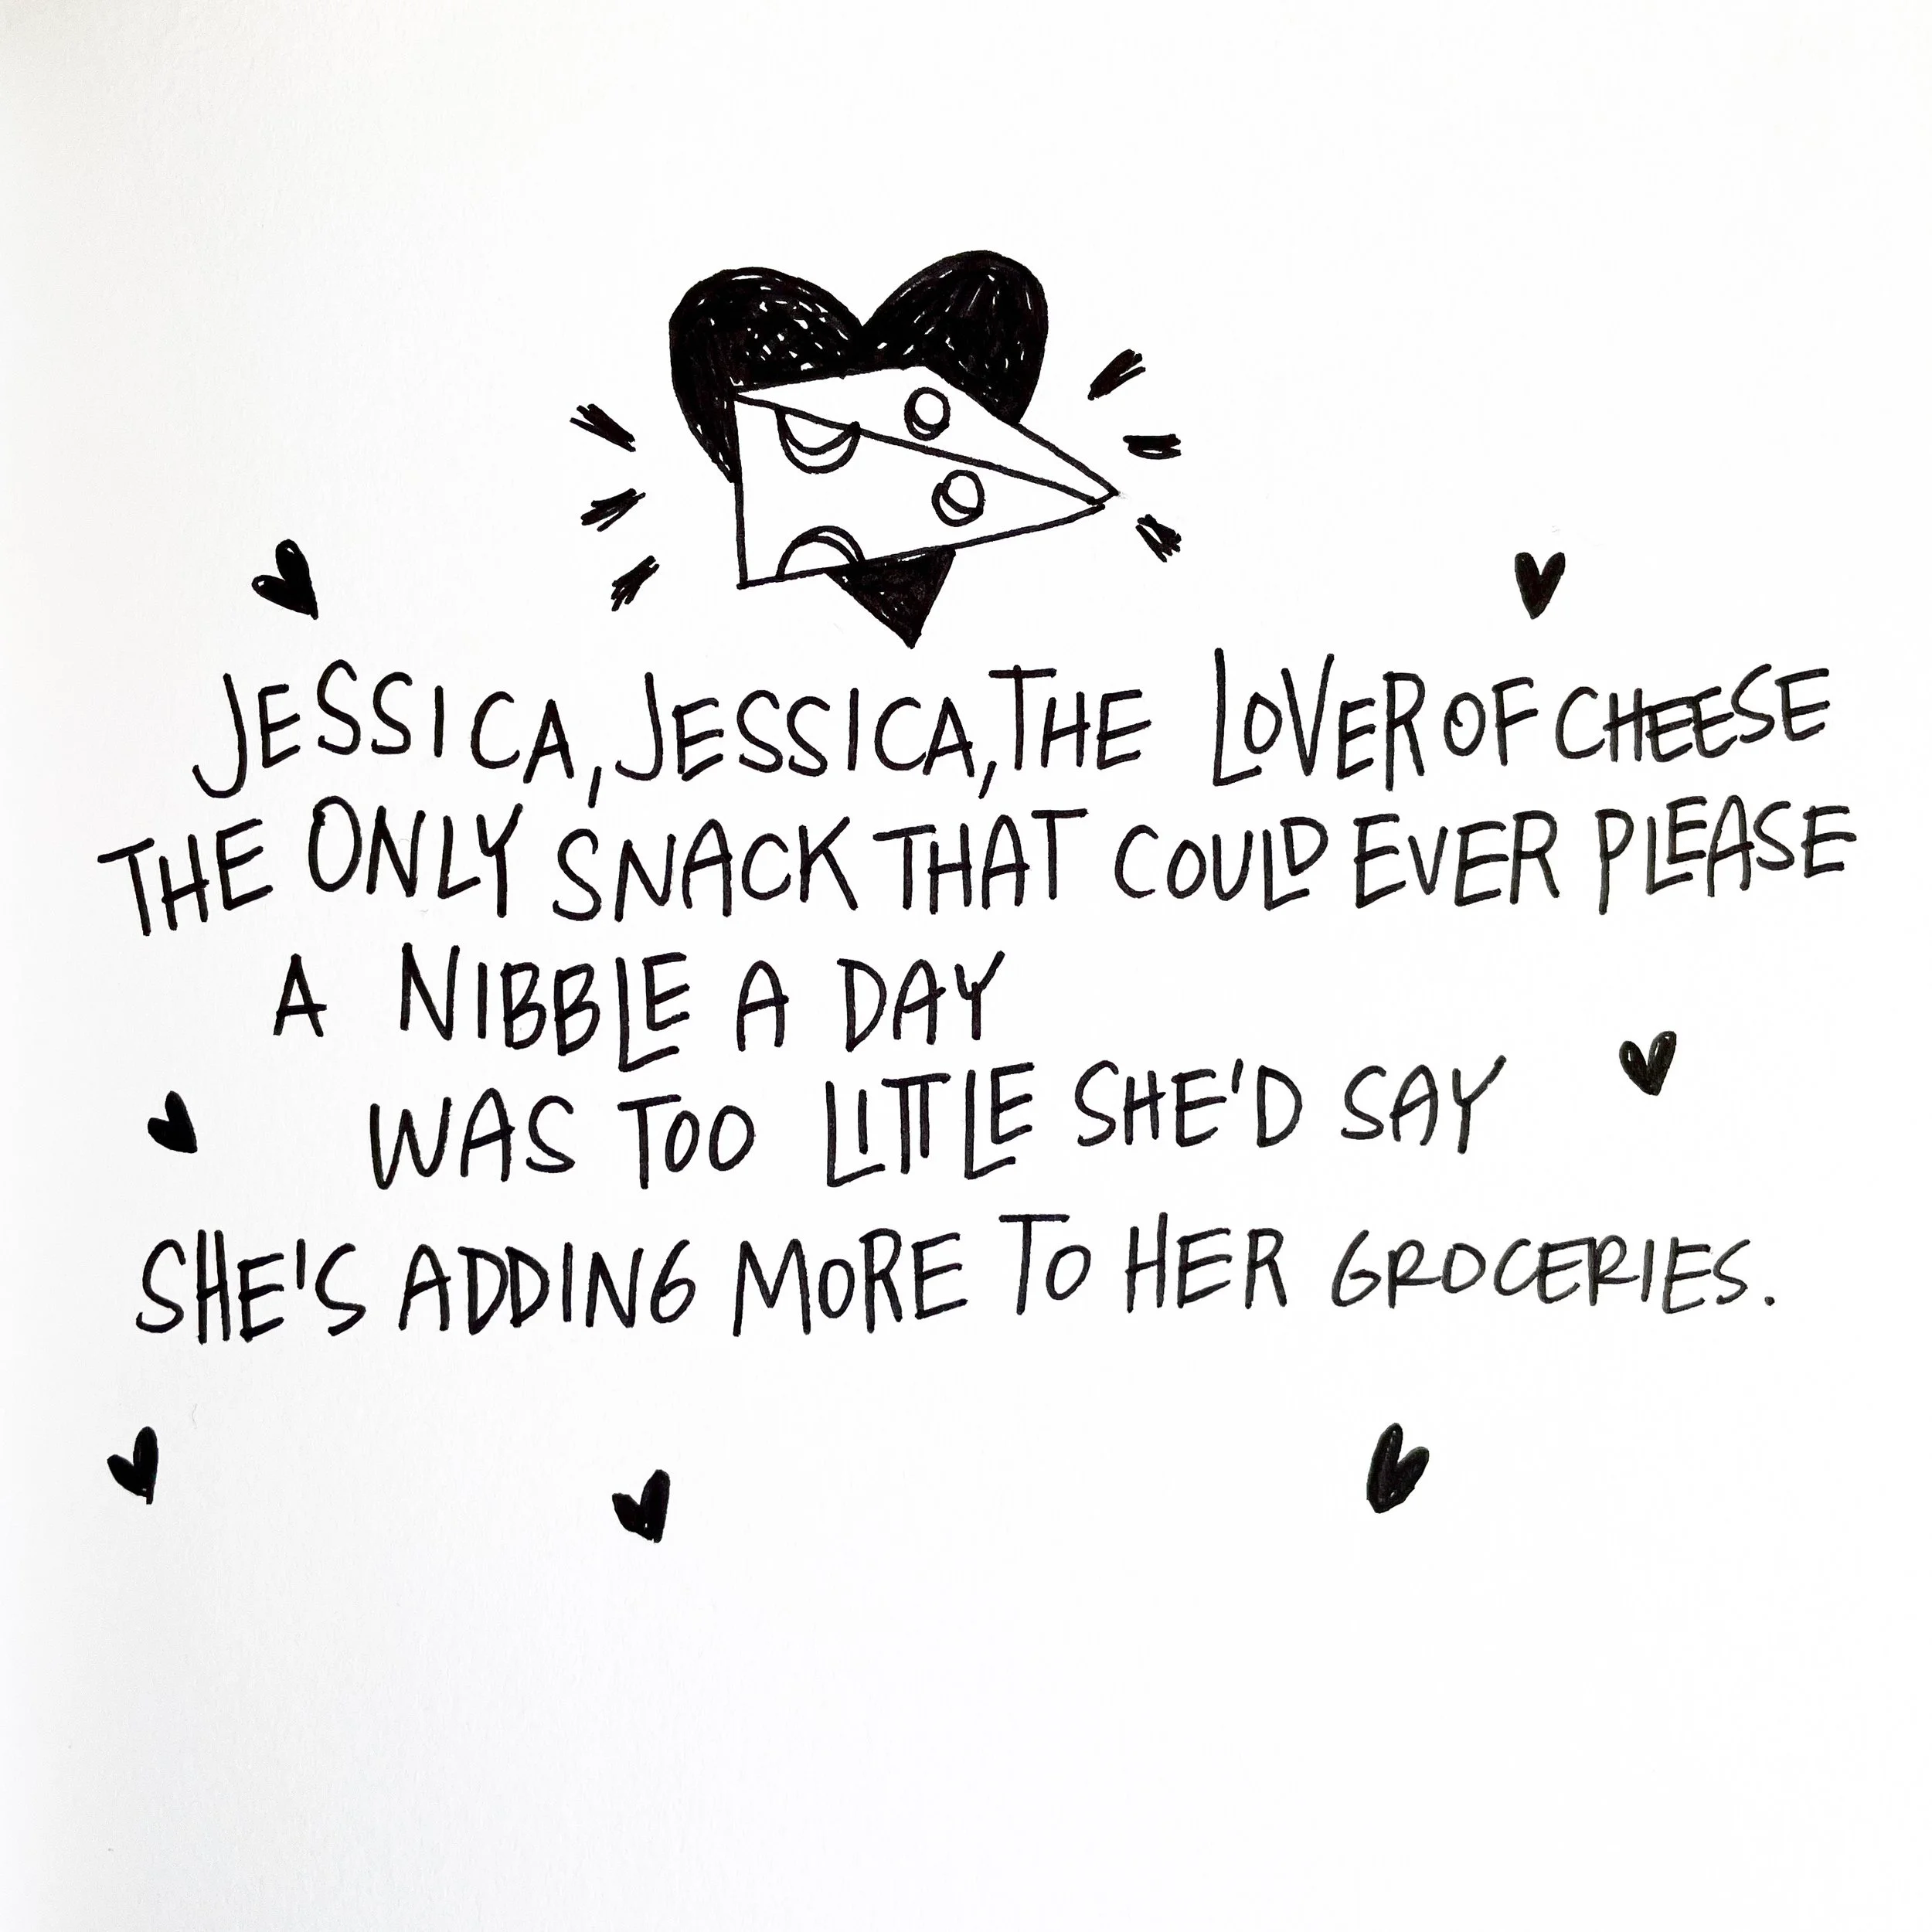 JESSICA, JESSICA, THE LOVER OF CHEESE
THE ONLY SNACK THAT COULD EVER PLEASE
A NIBBLE A DAY
WAS TOO LITTLE SHE'D SAY
SHE'S ADDING MORE TO HER GROCERIES.